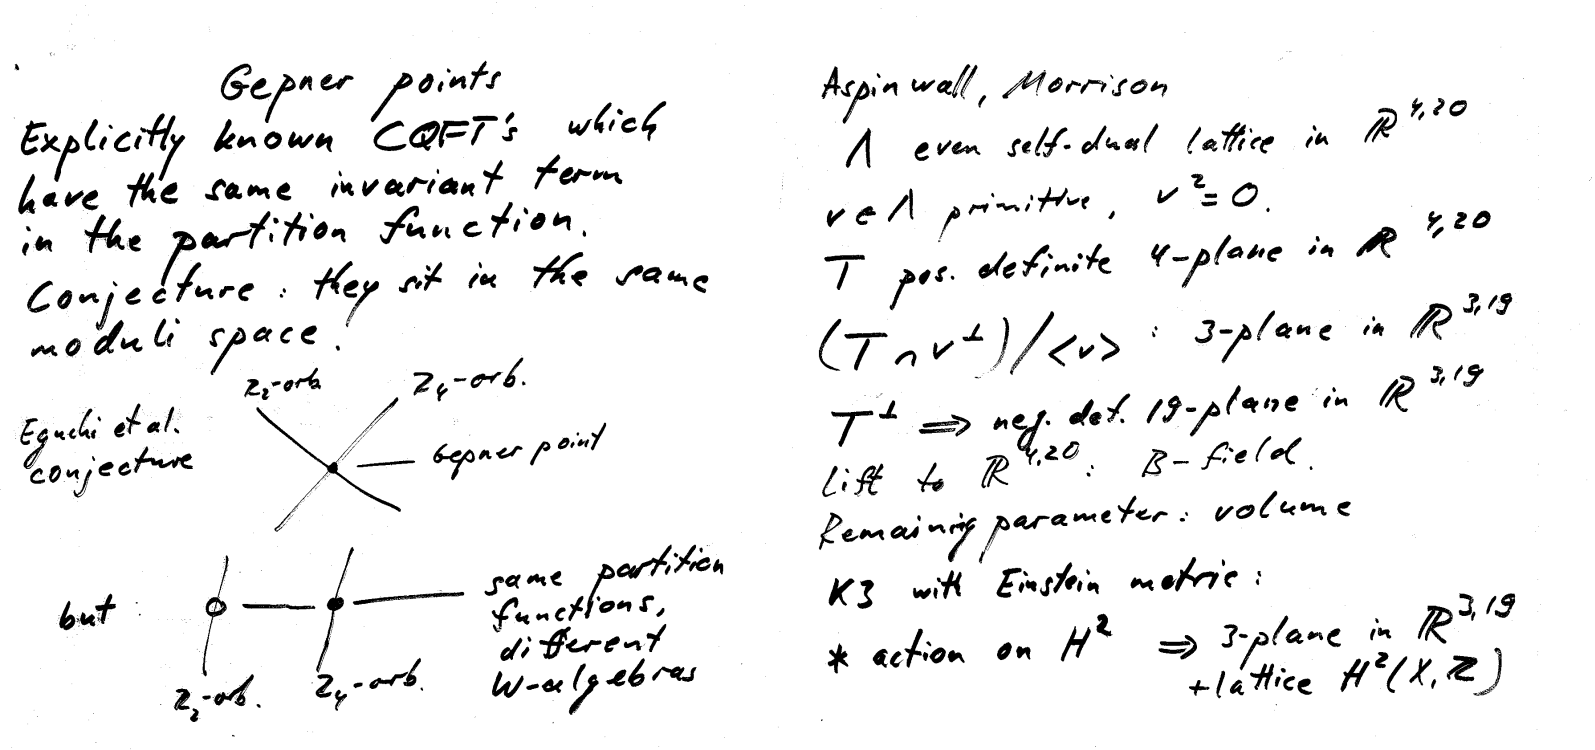 Gepner points
Explicitly known CQFT's which
have the same invariant term
in the partition function.
Conjecture: they sit in the same
moduli space.
Z₂-orb. Z₄-orb.
Eguchi et al.
conjecture
Gepner point
but :
same partition
functions,
different
W-algebras
Z₂-orb. Z₄-orb.
Aspinwall, Morrison
Λ even self-dual lattice in ℝ^4,20
v∈Λ primitive, v²=0.
T pos. definite 4-plane in ℝ^4,20
(T∩v^⊥)/<v> : 3-plane in ℝ^3,19
T^⊥ ⟹ neg. def. 19-plane in ℝ^3,19
Lift to ℝ^4,20 : B-field.
Remaining parameter: volume
K3 with Einstein metric:
* action on H² ⟹ 3-plane in ℝ^3,19
+lattice H²(X,ℤ)